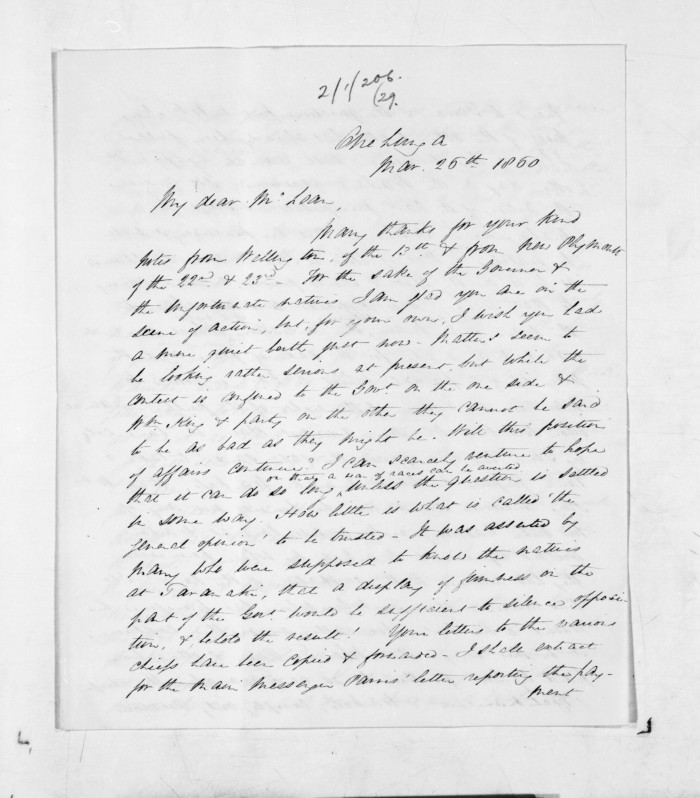 2/1/206.
/29.
Onehunga
Mar. 26th 1860
My dear McLean,
Many thanks for your kind
notes from Wellington, of the 13th & from New Plymouth
of the 22nd & 23rd. For the sake of the Governor &
the unfortunate natives I am glad you are on the
scene of action, but, for your own, I wish you had
a more quiet berth just now. Matters seem to
be looking rather serious at present, but while the
contest is confined to the Govt. on the one side &
Wm. King & party on the other they cannot be said
to be as bad as they might be. Will this position
of affairs continue? I can scarcely venture to hope
or that a war of races can be averted
that it can do so long, unless the question is settled
in some way. How little is what is called the
general opinion' to be trusted - It was asserted by
many who were supposed to know the natives
at Taranaki, that a display of firmness on the
part of the Govt. would be sufficient to silence opposi-
tion, & behold the result! Your letters to the various
chiefs have been copied & forwarded - I shall extract
for the Maori Messenger Parris' letter reporting the pay-
ment